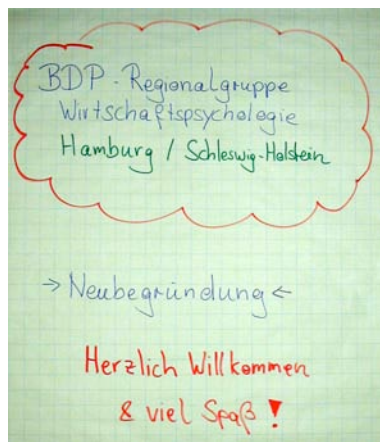 BDP - Regionalgruppe
Wirtschaftspsychologie
Hamburg / Schleswig-Holstein
→ Neubegründung ←
Herzlich Willkommen
& viel Spaß !